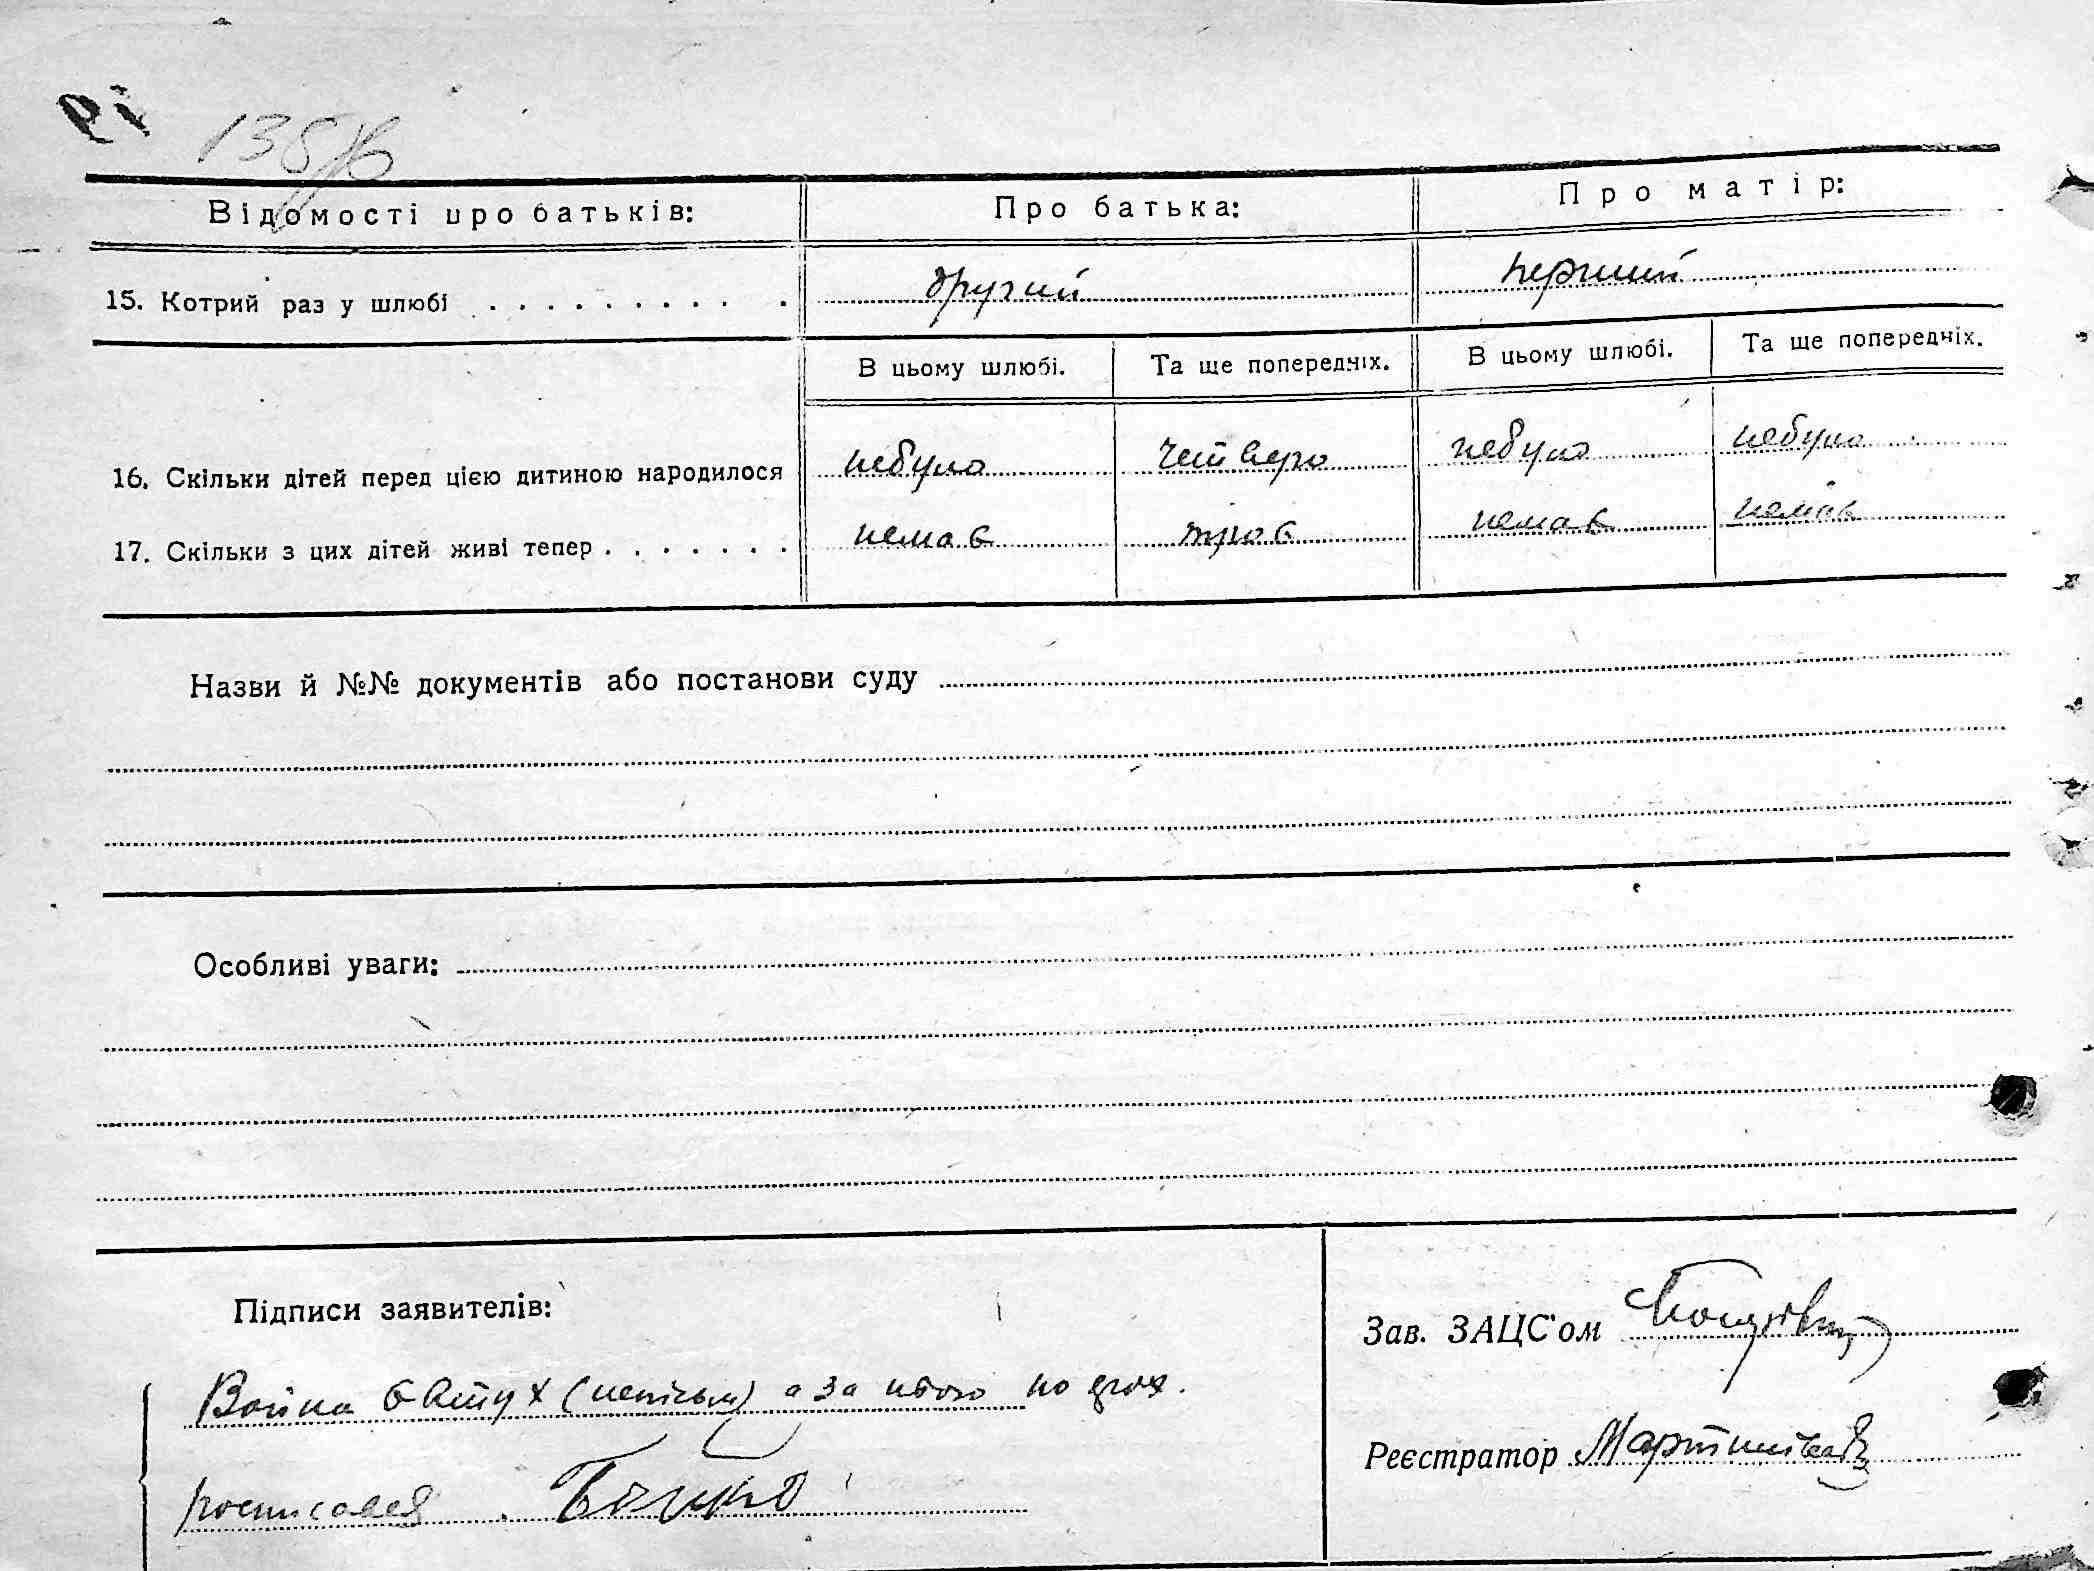 Рі
138
Відомості про батьків: Про батька: Про матір:
15. Котрий раз у шлюбі . . . . . . . . . . . другий перший
В цьому шлюбі. Та ще попередніх. В цьому шлюбі. Та ще попередніх.
16. Скільки дітей перед цією дитиною народилося небуло четверо небуло небуло
17. Скільки з цих дітей живі тепер . . . . . . . немає троє немає немає
Назви й №№ документів або постанови суду
Особливі уваги:
Підписи заявителів:
Зав. ЗАЦС'ом
Война (непісьм) а за нього по
Реєстратор
росписался Бойко